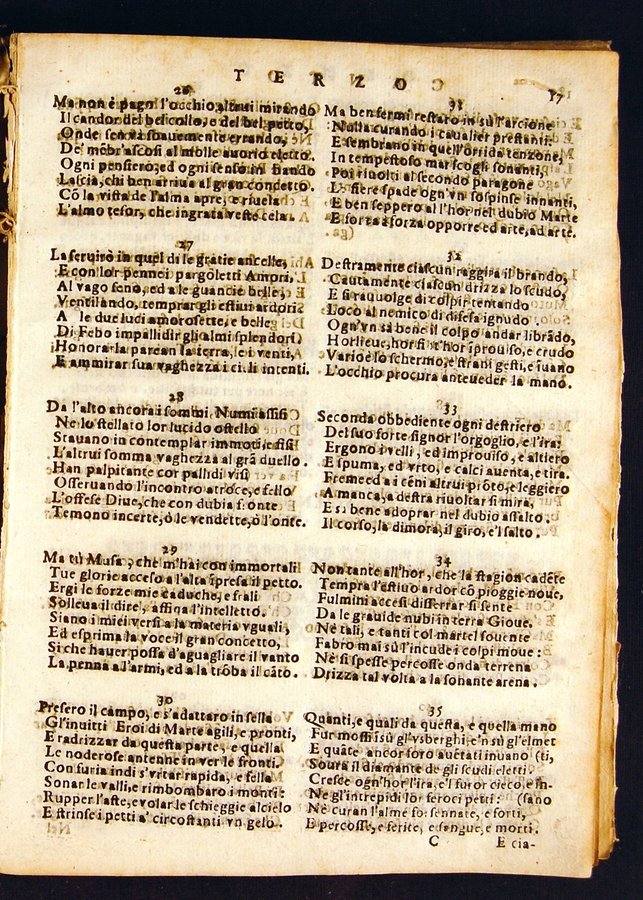 TERZO
17
26
Ma non è pago l'occhio altrui mirando
Il candor del bel collo, e del bel petto,
Onde sen va soauemente errando,
De' mẽbr'ascosi al molle auorio eletto.
Ogni pensiero, ed ogni senso in bando
Lascia, chi ben arriua al gran concetto.
Cõ la vista de l'alma apre, e riuela
L'almo tesor, che ingrata veste cela.
27
La seruirò in quel dì le gratie ancelle,
E con lor penne i pargoletti Amori,
Al vago seno, ed a le guancie belle,
Ventilando, temprar gli estiui ardori
A le due luci amorosette, e belle
Di Febo impallidir gli almi splendori
Honorar la parean la terra, e i venti,
E ammirar sua vaghezza i cieli intenti.
28
Da l'alto ancora i sommi Numi assisi
Ne lo stellato lor lucido ostello
Stauano in contemplar immoti, e fisi
L'altrui somma vaghezza al grã duello.
Han palpitante cor pallidi visi
Osseruando l'incontro atroce, e fello
L'offese Diue, che con dubia fronte
Temono incerte, ò le vendette, ò l'onte.
29
Ma tù Musa, che m'hai con immortali
Tue glorie acceso a l'alta ĩpresa il petto.
Ergi le forze mie caduche, e frali
Solleua il dire, affina l'intelletto.
Siano i miei versi a la materia vguali,
Ed esprima la voce il gran concetto,
Si che hauer possa d'aguagliare il vanto
La penna a l'armi, ed a la trõba il cãto.
30
Presero il campo, e s'adattaro in sella
Gl'inuitti Eroi di Marte agili, e pronti,
E radrizzar da questa parte, e quella
Le noderose antenne in ver le fronti.
Con furia indi s'vrtar rapida, e fella
Sonar le valli, e rimbombaro i monti:
Rupper l'aste, e volar le schieggie al cielo
E strinse i petti a' circostanti vn gelo.
31
Ma ben fermi restaro in sù l'arcione
Nulla curando i caualier prestanti.
E sembrano in quell'orrida tenzone,
In tempestoso mar scogli sonanti,
Poi riuolti al secondo paragone
Le fiere spade ogn'vn sospinse innanti,
E ben seppero al l'hor nel dubio Marte
E forza a forza opporre ed arte, ad arte.
32
Destramente ciascun raggira il brando,
Cautamente ciascun drizza lo scudo,
E si rauuolge di colpir tentando
Loco al nemico di difesa ignudo
Ogn'vn sà bene il colpo andar librãdo,
Hor lieue, hor fi t'hor ĩprouiso, e crudo
Vario è lo schermo, e strani gesti, e fuano
L'occhio procura anteueder la mano.
33
Seconda obbediente ogni destriero
Del suo forte signor l'orgoglio, e l'ira:
Ergono i velli, ed improuiso, e altiero
E spuma, ed vrto, e calci auenta, e tira.
Freme ed a i cẽni altrui prõto, e leggiero
A manca, a destra riuoltar si mira,
E si bene adoprar nel dubio assalto
Il corso, la dimora, il giro, e'l salto.
34
Non tante all'hor, che la stagion cadẽte
Tempra l'estiuo ardor cõ pioggie noue,
Fulmini accesi disserrar si sente
Da le grauide nubi in terra Gioue.
Nè tali, e tanti col martel souente
Fabro mai sù l'incude i colpi moue:
Nè si spesse percosse onda terrena
Drizza tal volta a la sonante arena.
35
Quanti, e quali da questa, e quella mano
Fur mossi sù gl'vsberghi, e'n sù gl'elmet
E quãte ancor foro auẽtati inuano (ti,
Soura il diamante de gli scudi eletti.
Cresce ogn'hor l'ira, e'l furor cieco, e in-
Ne gl'intrepidi lor feroci petti: (sano
Nè curan l'alme fo: sennate, e forti,
E percosse, e ferite, e sangue, e morti.
C E cia-